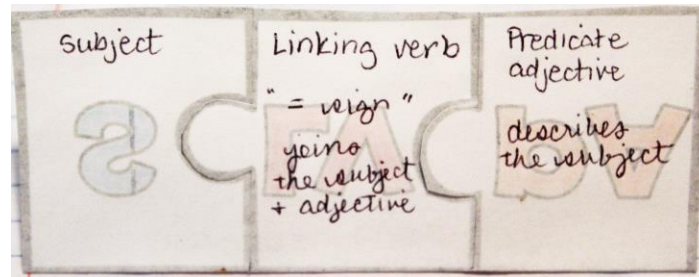 Subject
Linking verb
"= sign"
joins
the subject
+ adjective
Predicate
adjective
describes
the subject